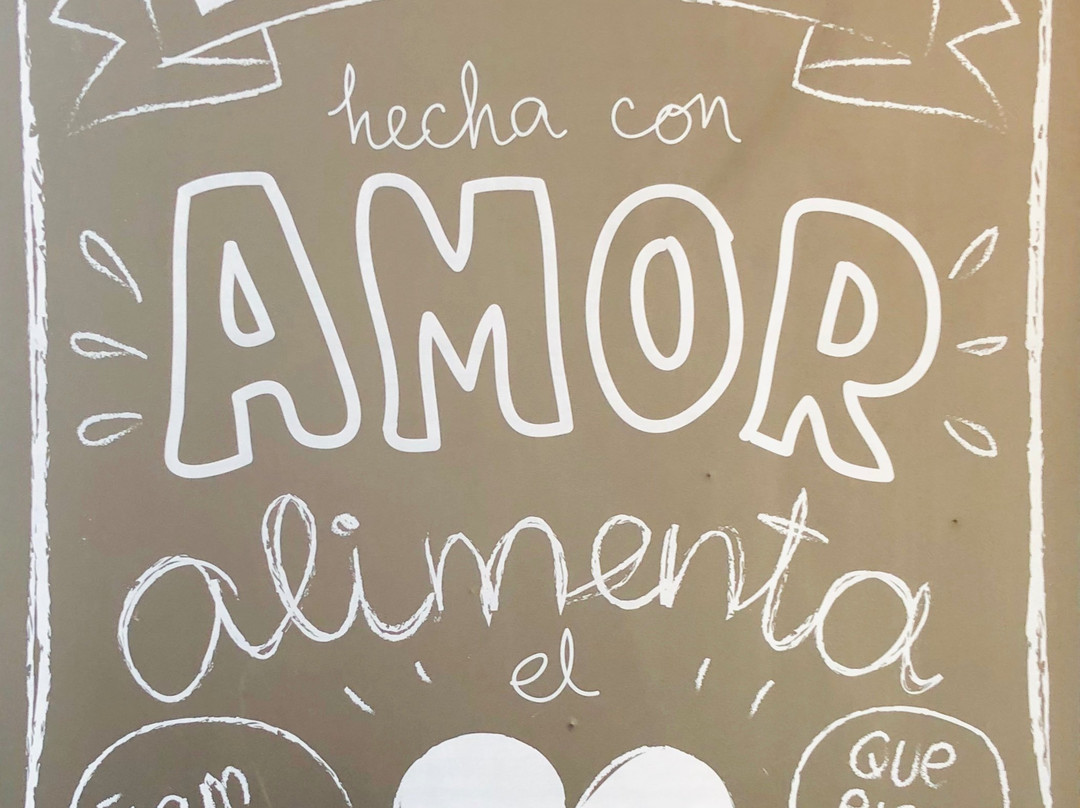 hecha con
AMOR
alimenta
el
Que